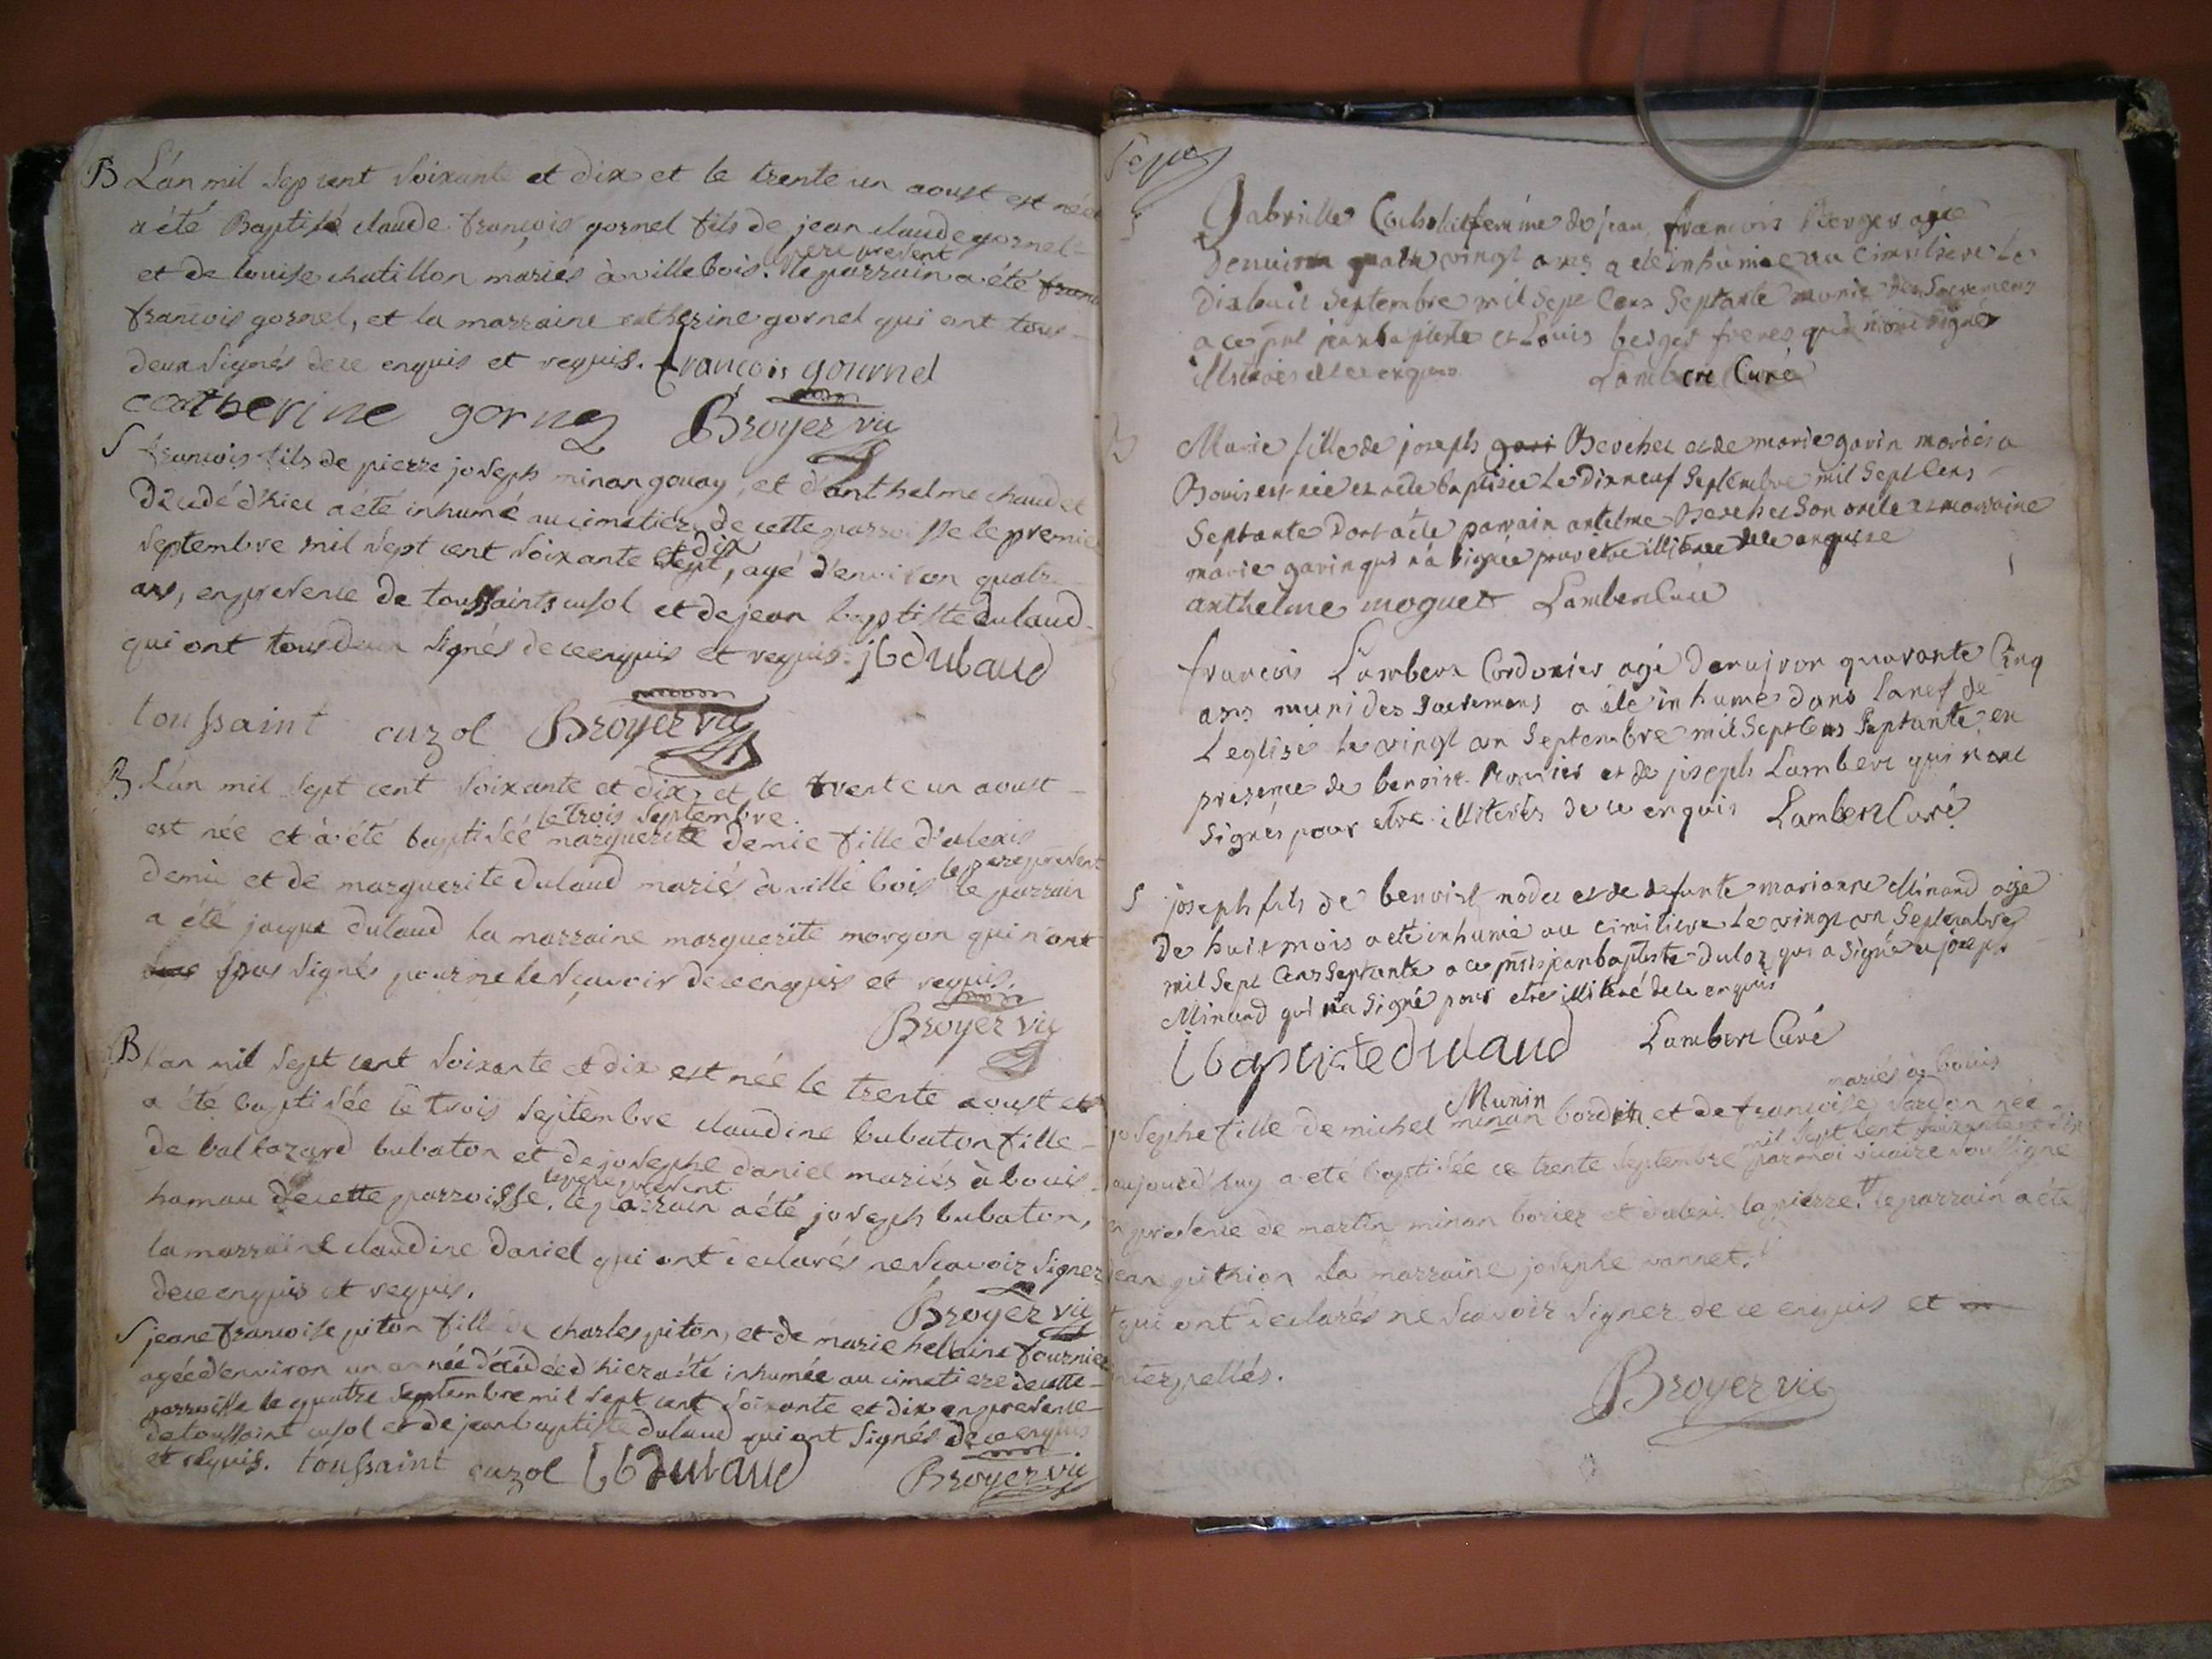 B L'an mil sep cent soixante et dix et le trente un aoust est né et
a été Baptisé claude françois gornel fils de jean claude gornel
pere present
et de louise chatillon mariés à villebois. le parrain a été
françois gornel, et la marraine catherine gornel qui ont tous
deux signés de ce enquis et requis. françois gournel
catherine gornel Broyer vic
S françois fils de pierre joseph minan gouay, et d'anthelme chaudet
décédé d'hier a été inhumé au cimetiere de cette parroisse le premier
dix
septembre mil sept cent soixante et sept, agé d'environ quatre
ans, en presence de toussaints cusol et de jean baptiste dulaud
qui ont tous deux signés de ce enquis et requis. jb dubaud
toussaint cuzol Broyer vic
B L'an mil sept cent soixante et dix, et le trente un aoust
le trois septembre
est née et a été baptisée marguerite demie fille d'alexis
le pere present
demie et de marguerite dulaud mariés à villebois le parrain
a été jaque dulaud la marraine marguerite morgon qui n'ont
sous signés pour ne le sçavoir de ce enquis et requis.
Broyer vic
B L'an mil sept cent soixante et dix est née le trente aoust et
a été baptisée le trois septembre claudine bubaton fille
de baltazard bubaton et de josephe daniel mariés à bouis
le pere present
hamau de cette parroisse. le parrain a été joseph bubaton,
la marraine claudine daniel qui ont declarés ne sçavoir signer
de ce enquis et requis.
Broyer vic
S jeane françoise piton fille de charles piton, et de marie hellaine fournier
agée d'environ un année décédée d'hier a été inhumée au cimetiere de cette
parroisse le quatre septembre mil sept cent soixante et dix en presence
de toussaint cusol et de jean baptiste dulaud qui ont signés de ce enquis
et requis. toussaint cuzol jb dubaud Broyer vic
S Gabrielle femme de jean françois Berger agée
Denuiron quatre vingt ans a été inhumée au Cimetiere le
Dixhuit Septembre mil Sept Cens Septante munie des Sacremens
a ce pnt jean baptiste et Louis berger freres qui n'ont signé
illiterés de ce enquis Lambert Curé
B Marie fille de joseph gari Berchet et de marie gavin mariés a
Bouis est née et a été baptisée Le Dixneuf Septembre mil Sept Cens
Septante Dont a été parrain antelme Berchet Son oncle et marraine
marie gavin qui n'a signée pour être illiterée de ce enquise
anthelme moguet Lambert Curé
françois Lambert Cordonier agé denuiron quarante Cinq
ans muni des Sacremens a été inhumé dans la nef de
L'eglise le vingt un Septembre mil Sept Cens Septante en
presence de benoist et de joseph Lambert qui n'ont
Signés pour etre illiterés de ce enquis Lambert Curé
S joseph fils de benoist nodet et de defunte marianne Minand agé
De huit mois a été inhumé au cimitiere Le vingt un Septembre
mil Sept Cens Septante a ce pnts jean baptiste duloz qui a Signé et joseph
Minand qui n'a Signé pour etre illiteré de ce enquis
jbaptiste dubaud Lambert Curé
Munin mariés à bouis
josephe fille de michel minan bordin et de françoise sardon née
mil sept cent soixante et dix
aujourd'huy a été baptisée ce trente septembre par moi vicaire soussigné
en presence de martin minan borier et d'alexis lapierre. le parrain a été
jean guithion la marraine josephe vannet.
qui ont declarés ne sçavoir signer de ce enquis et
interpellés.
Broyer vic